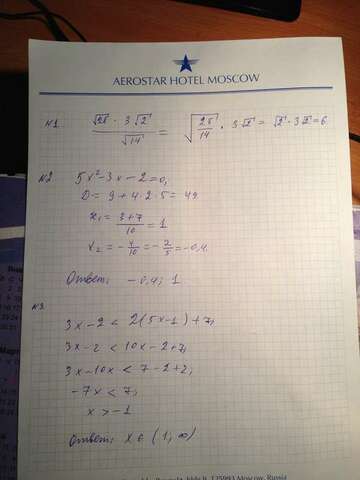 AEROSTAR HOTEL MOSCOW
№1 √28 · 3√2 / √14 = √(28/14) · 3√2 = √2 · 3√2 = 6
№2 5x² - 3x - 2 = 0,
D = 9 + 4 · 2 · 5 = 49
x₁ = (3+7)/10 = 1
x₂ = -4/10 = -2/5 = -0,4.
Ответ: -0,4; 1
№3.
3x - 2 < 2(5x-1) + 7,
3x - 2 < 10x - 2 + 7,
3x - 10x < 7 - 2 + 2,
-7x < 7,
x > -1
Ответ: x ∈ (1, ∞)
125993 Moscow, Russia